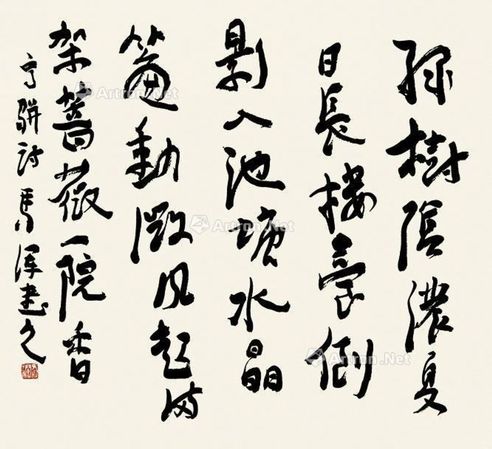 綠樹陰濃夏
日長樓臺倒
影入池塘水晶
簾動微風起滿
架薔薇一院香
高駢詩 馬 書
Artron.Net
Artron.Net
Artron.Net
Artron.Net